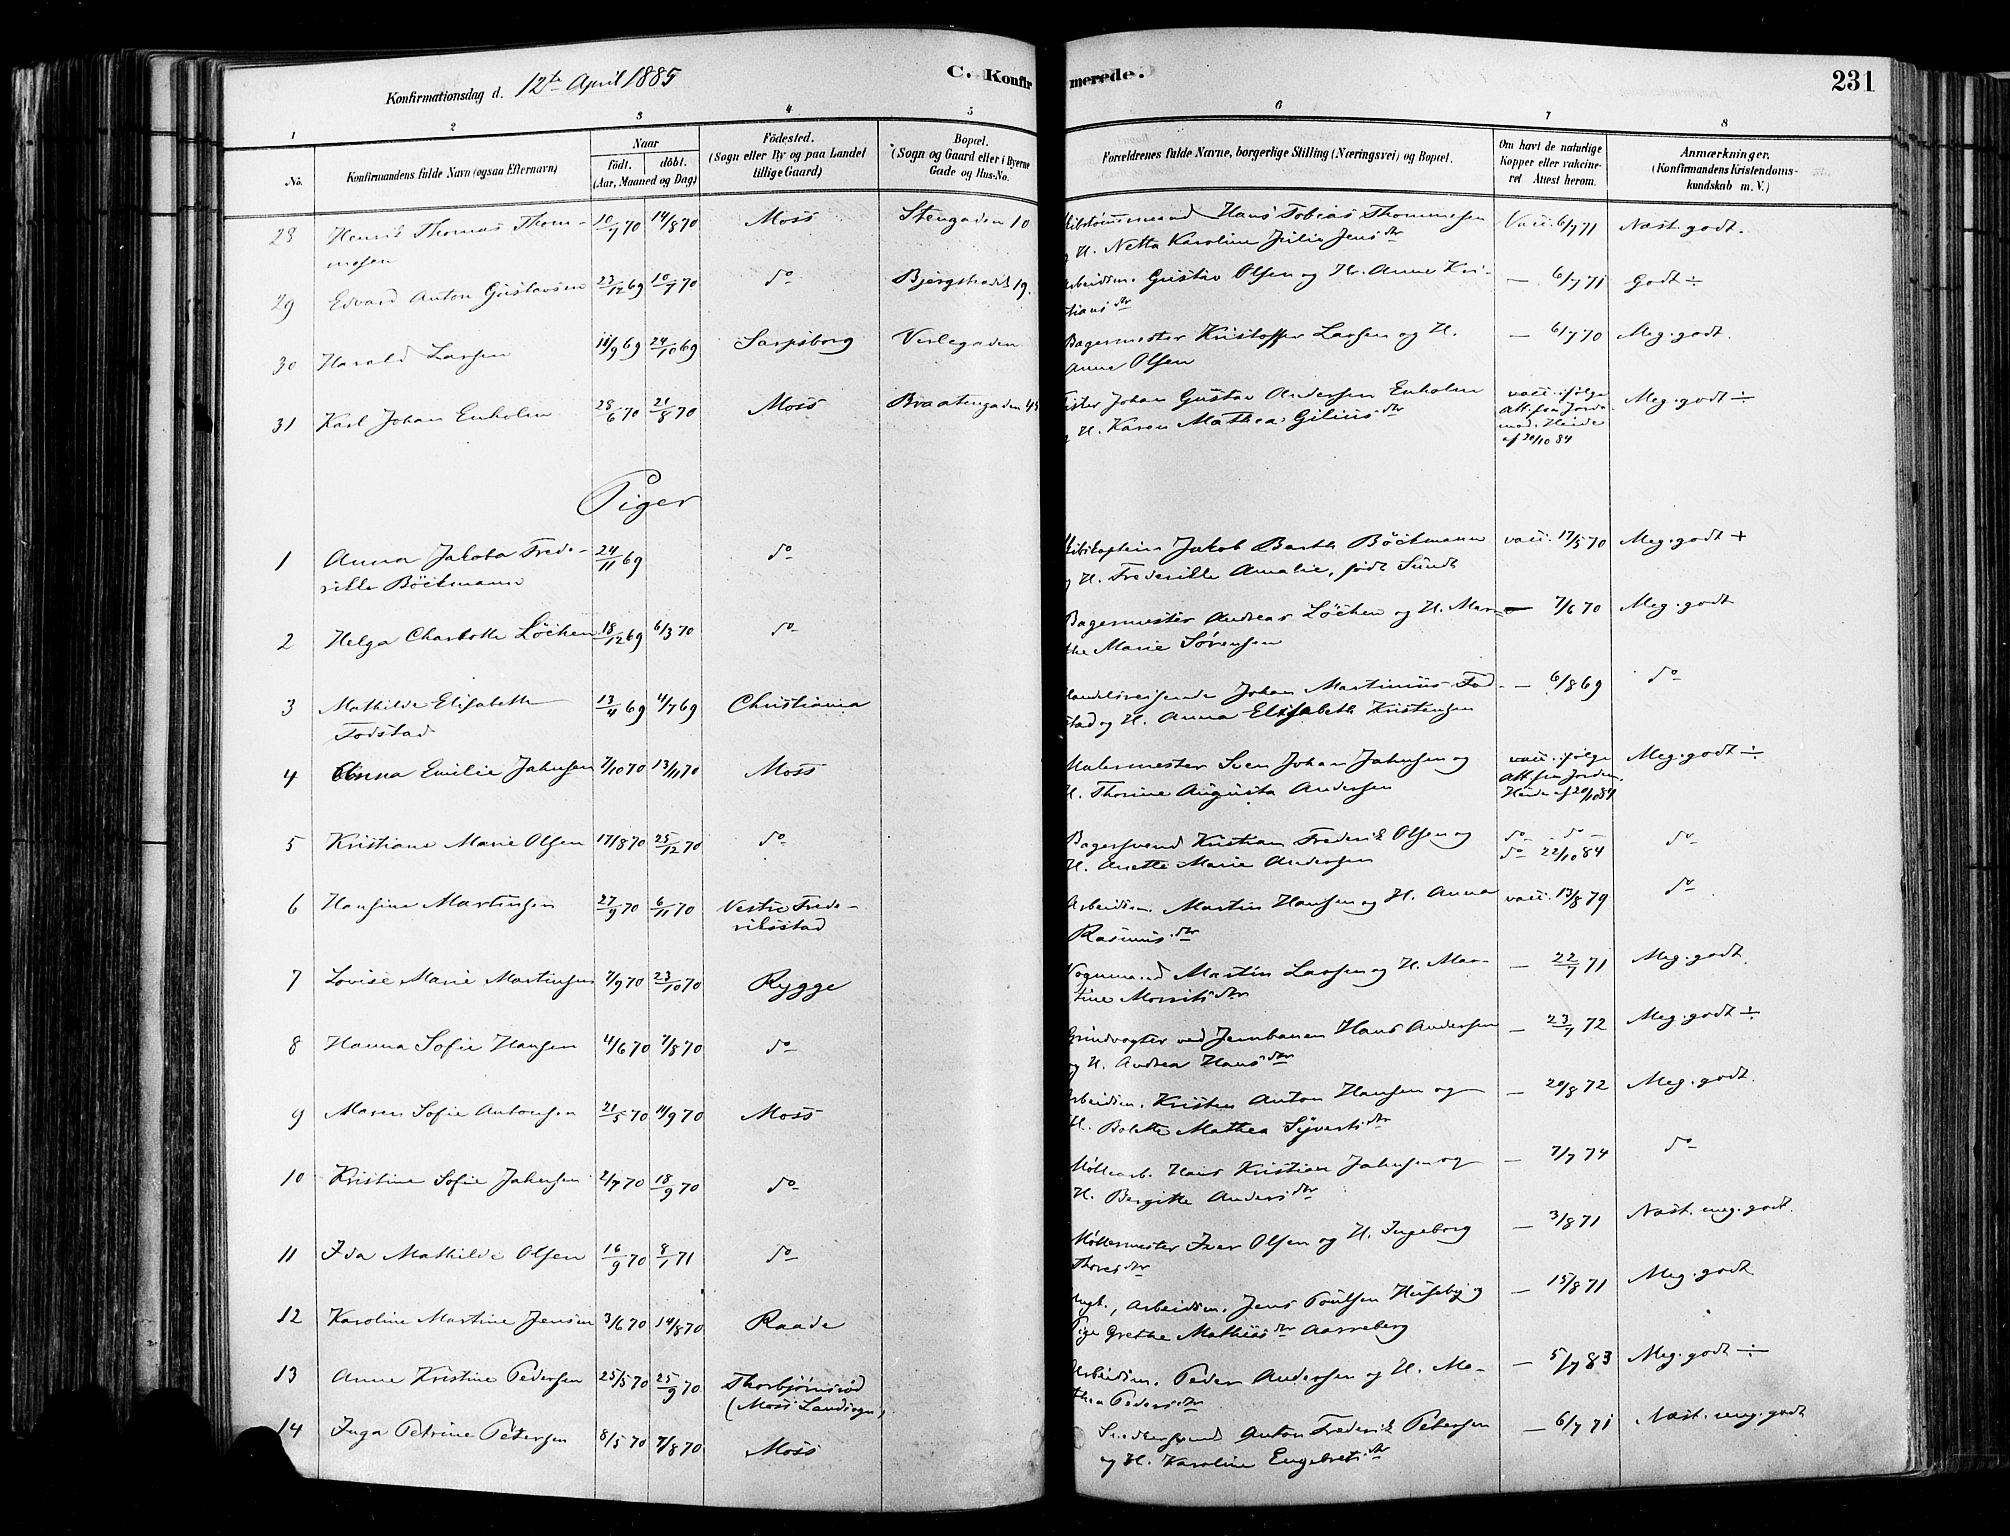 Konfirmationsdag d. 12te April 1885
C. Konfirmerede.
231
1 2 3 4 5 6 7 8
No.
Konfirmandens fulde Navn (ogsaa Efternavn)
Naar
födt. döbt.
(Aar, Maaned og Dag)
Födested.
(Sogn eller By og paa Landet
tillige Gaard)
Bopæl.
(Sogn og Gaard eller i Byerne
Gade og Hus-No.
Forældrenes fulde Navne, borgerlige Stilling (Næringsvei) og Bopæl.
Om havt de naturlige
Kopper eller vakcine-
ret Attest herom.
Anmærkninger.
(Konfirmandens Kristendoms-
kundskab m. V.)
28 Henrik Thomas Thom- 10/7 70 14/8 70 Moss Stengaden 10 Hans Tobias Thommesen Vacc. 6/7 71 Næst. godt.
mesen H. Netta Karoline Julie Jens dtr
29 Edvard Anton Gustavsen 23/12 69 10/7 70 do 19. Arbeidsm. Gustav Olsen og H. Anne Kri- — 6/7 71 Godt ÷
stians dtr
30 Harald Larsen 11/9 69 24/10 69 Sarpsborg Verlegaden Bagermester Kristoffer Larsen og H. — 6/7 70 Meg. godt.
Anne Olsen
31 Karl Johan Enholm 28/6 70 21/8 70 Moss Braatengaden Johan Gustav Andersen Enholm vacc. ifølge Meg. godt ÷
H. Karen Mathea Gilius dtr Att. fra Jorde-
mod. Heide
af 20/10 84
Piger
1 Anna Jakoba Frede- 24/11 69 do Jakob Barth Böckmann vacc. 17/5 70 Meg. godt +
rikke Böckmann og H. Frederikke Amalie, født Sundt
2 Helga Charlotte Löchen 18/12 69 6/3 70 do Bagermester Andreas Löchen og H. Mar- — 7/6 70 Meg. godt
the Marie Sørensen
3 Mathilde Elisabeth 13/4 69 4/7 69 Christiania Handelsreisende Johan Martinius Fod- — 6/8 69 do
Fodstad stad og H. Anna Elisabeth Kristensen
4 Anna Emilie Jahnsen 7/10 70 13/11 70 Moss Malermester Sven Johan Jahnsen og vacc. ifølge Meg. godt ÷
H. Thorine Augusta Andersen Att. fra Jordm.
Heide af 20/10 84
5 Kristiane Marie Olsen 17/8 70 25/12 70 do Bagersvend Kristian Frederik Olsen og do do do
H. Anette Marie Andersen do 22/10 84
6 Hansine Martinsen 27/9 70 6/11 70 Vestre Frede- Arbeidsm. Martin Hansen og H. Anna vacc. 13/8 79 do
riksstad Rasmus dtr
7 Lovise Marie Martinsen 7/9 70 23/10 70 Rygge Vognmand Martin Larsen og H. Mar- — 22/7 71 Meg. godt.
tine Morits dtr
8 Hanna Sofie Hansen 4/6 70 7/8 70 do Grindvogter ved Jernbanen Hans Andersen — 23/7 72 Meg. godt ÷
og H. Andrea Hans dtr
9 Maren Sofie Antonsen 21/5 70 11/9 70 Moss Arbeidsm. Kristen Anton Hansen og — 20/8 72 Meg. godt.
H. Bolette Mathea Syverts dtr
10 Kristine Sofie Jahnsen 2/7 70 18/9 70 do Møllearb. Hans Kristian Jahnsen og — 7/7 74 do
H. Bergitte Anders dtr
11 Ida Mathilde Olsen 16/9 70 8/1 71 do Møllermester Iver Olsen og H. Ingeborg — 3/8 71 Næst. meg. godt.
Thores dtr
12 Karoline Martine Jensen 3/6 70 14/8 70 Raade Ungk., Arbeidsm. Jens Poulsen Huseby og — 15/8 71 Meg. godt
Pige Grethe Mathias dtr Aarreberg
13 Anne Kristine Pedersen 25/5 70 25/9 70 Thorbjörnsröd Arbeidsm. Peder Andersen og H. Ma- — 5/7 83 Meg. godt ÷
(Moss Landsogn) thea Peders dtr
14 Inga Petrine Petersen 8/5 70 7/8 70 Moss Snedkersvend Anton Frederik Petersen — 6/7 71 Næst. meg. godt
og H. Karoline Engebrets dtr